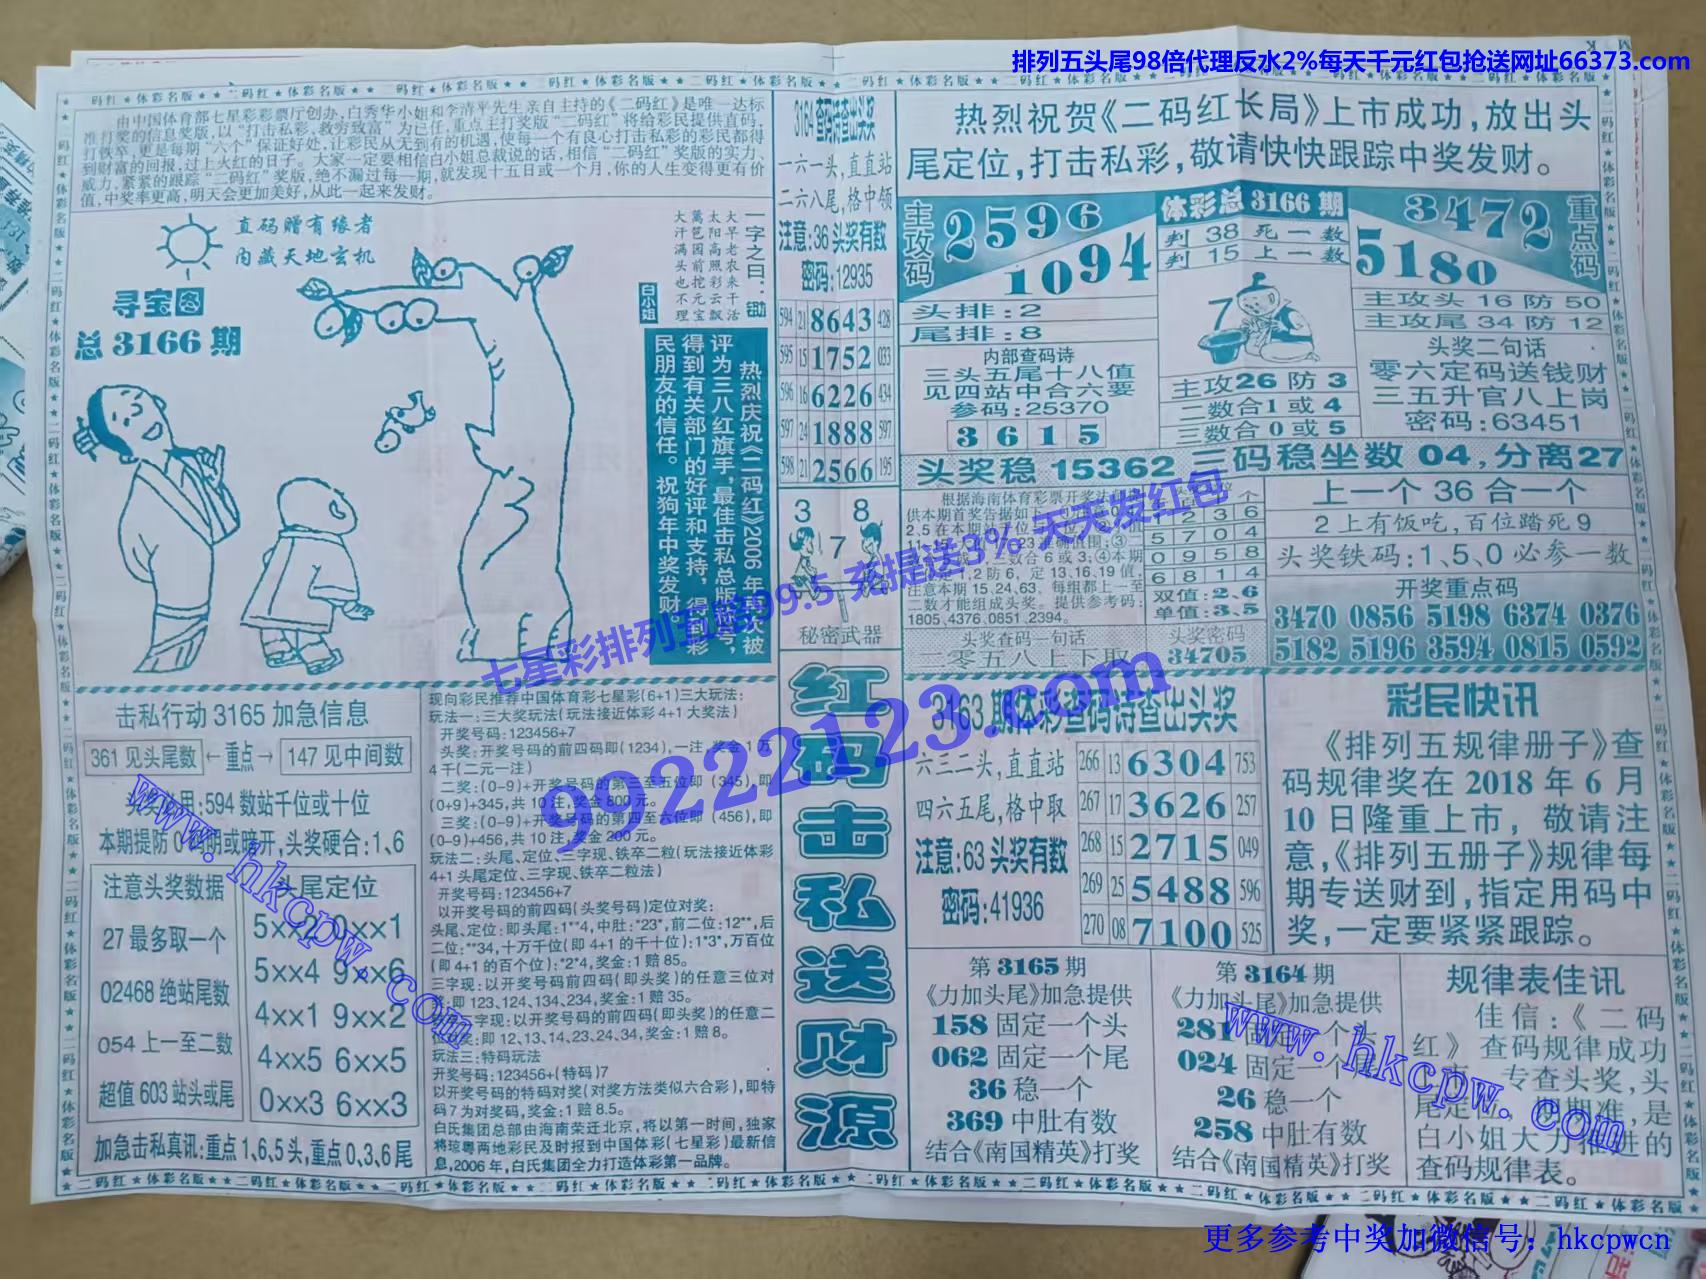 排列五头尾98倍代理反水2%每天千元红包抢送网址66373.com
由中国体育部七星彩彩票厅创办,白秀华小姐和李清平先生亲自主持的《二码红》是唯一达标
准打奖的信息奖版,以“打击私彩,救穷致富”为己任,重点主打奖版“二码红”将给彩民提供直码,
打铁卒,更是每期“六个”保证好处,让彩民从无到有的机遇,使每一个有良心打击私彩的彩民都得
到财富的回报,过上火红的日子。大家一定要相信白小姐总裁说的话,相信“二码红”奖版的实力、
威力,紧紧的跟踪“二码红”奖版,绝不漏过每一期,就发现十五日或一个月,你的人生变得更有价
值,中奖率更高,明天会更加美好,从此一起来发财。
直码赠有缘者
内藏天地玄机
寻宝图
总3166期
一字之曰:锄
大旱农来干活
太阳高照彩云飘
白小姐
热烈庆祝《二码红》2006年再次被
评为三八红旗手,最佳击私总版称号,
得到有关部门的好评和支持,得到彩
民朋友的信任。祝狗年中奖发财。
3164查码诗查出头奖
一六一头,直直站
二六八尾,格中领
注意:36头奖有数
密码:12935
594 21 8643 428
595 15 1752 033
596 16 6226 434
597 24 1888 597
598 21 2566 195
3 8
7
秘密武器
热烈祝贺《二码红长局》上市成功,放出头
尾定位,打击私彩,敬请快快跟踪中奖发财。
主攻码
2596
1094
体彩总3166期
判 38 死一数
判 15 上一数
3472
5180
重点码
头排:2
尾排:8
7
主攻头 16 防 50
主攻尾 34 防 12
内部查码诗
三头五尾十八值
见四站中合六要
参码:25370
3 6 1 5
主攻26防3
二数合1或4
三数合0或5
头奖二句话
零六定码送钱财
三五升官八上岗
密码:63451
头奖稳 15362 三码稳坐数 04,分离27
根据海南体育彩票开奖法
供本期首奖告据如下
注意本期 15、24、63, 每组都上一至
二数才能组成头奖。提供参考码:
1805、4376、0851、2394。
5 7 0 4
0 9 5 8
6 8 1 4
双值:2、6
单值:3、5
头奖查码一句话
一零五八上下取
头奖密码
34705
上一个 36 合一个
2上有饭吃,百位踏死9
头奖铁码:1、5、0必参一数
开奖重点码
3470 0856 5198 6374 0376
5182 5196 3594 0815 0592
七星彩排列五赔99.5 充提送3% 天天发红包
99222123.com
击私行动 3165 加急信息
361 见头尾数 ←重点→ 147 见中间数
594 数站千位或十位
头奖硬合:1、6
注意头奖数据
27 最多取一个
02468 绝站尾数
054 上一至二数
超值 603 站头或尾
头尾定位
5xx2 0xx1
5xx4 9xx6
4xx1 9xx2
4xx5 6xx5
0xx3 6xx3
加急击私真讯:重点1、6、5头,重点0、3、6尾
现向彩民推荐中国体育彩七星彩(6+1)三大玩法:
玩法一:三大奖玩法(玩法接近体彩 4+1 大奖法)
开奖号码:123456+7
头奖:开奖号码的前四码即(1234),一注,奖金1万
4千(二元一注)
二奖:(0-9)+开奖号码的第三至五位即(345),即
(0+9)+345,共10注,奖金800元。
三奖:(0-9)+开奖号码的第四至六位即(456),即
(0-9)+456,共10注,奖金200元。
玩法二:头尾、定位、三字现、铁卒二粒(玩法接近体彩
4+1 头尾定位、三字现、铁卒二粒法)
开奖号码:123456+7
以开奖号码的前四码(头奖号码)定位对奖:
头尾、定位:即头尾:1**4,中肚:*23*,前二位:12**,后
二位:**34,十万千位(即 4+1 的千十位):1*3*,万百位
(即 4+1 的百个位):*2*4,奖金:1赔85。
三字现:以开奖号码前四码(即头奖)的任意三位对
奖:即 123、124、134、234,奖金:1赔35。
二字现:以开奖号码的前四码(即头奖)的任意二
位对奖:即 12、13、14、23、24、34,奖金:1赔8。
玩法三:特码玩法
开奖号码:123456+(特码)7
以开奖号码的特码对奖(对奖方法类似六合彩),即特
码7为对奖码,奖金:1赔8.5。
白氏集团总部由海南荣迁北京,将以第一时间,独家
将琼粤两地彩民及时报到中国体彩(七星彩)最新信
息,2006年,白氏集团全力打造体彩第一品牌。
红码击私送财源
3163期体彩查码诗查出头奖
六三二头,直直站
四六五尾,格中取
注意:63头奖有数
密码:41936
266 13 6304 753
267 17 3626 257
268 15 2715 049
269 25 5488 596
270 08 7100 525
彩民快讯
《排列五规律册子》查
码规律奖在 2018 年 6 月
10日隆重上市,敬请注
意,《排列五册子》规律每
期专送财到,指定用码中
奖,一定要紧紧跟踪。
第3165期
《力加头尾》加急提供
158 固定一个头
062 固定一个尾
36 稳一个
369 中肚有数
结合《南国精英》打奖
第3164期
《力加头尾》加急提供
281 固定一个头
024 固定一个尾
26 稳一个
258 中肚有数
结合《南国精英》打奖
规律表佳讯
佳信:《二码
红》查码规律成功
专查头奖,头
尾定位,期期准,是
白小姐大力推进的
查码规律表。
www.hkcpw.com
www.hkcpw.com
更多参考中奖加微信号:hkcpwcn